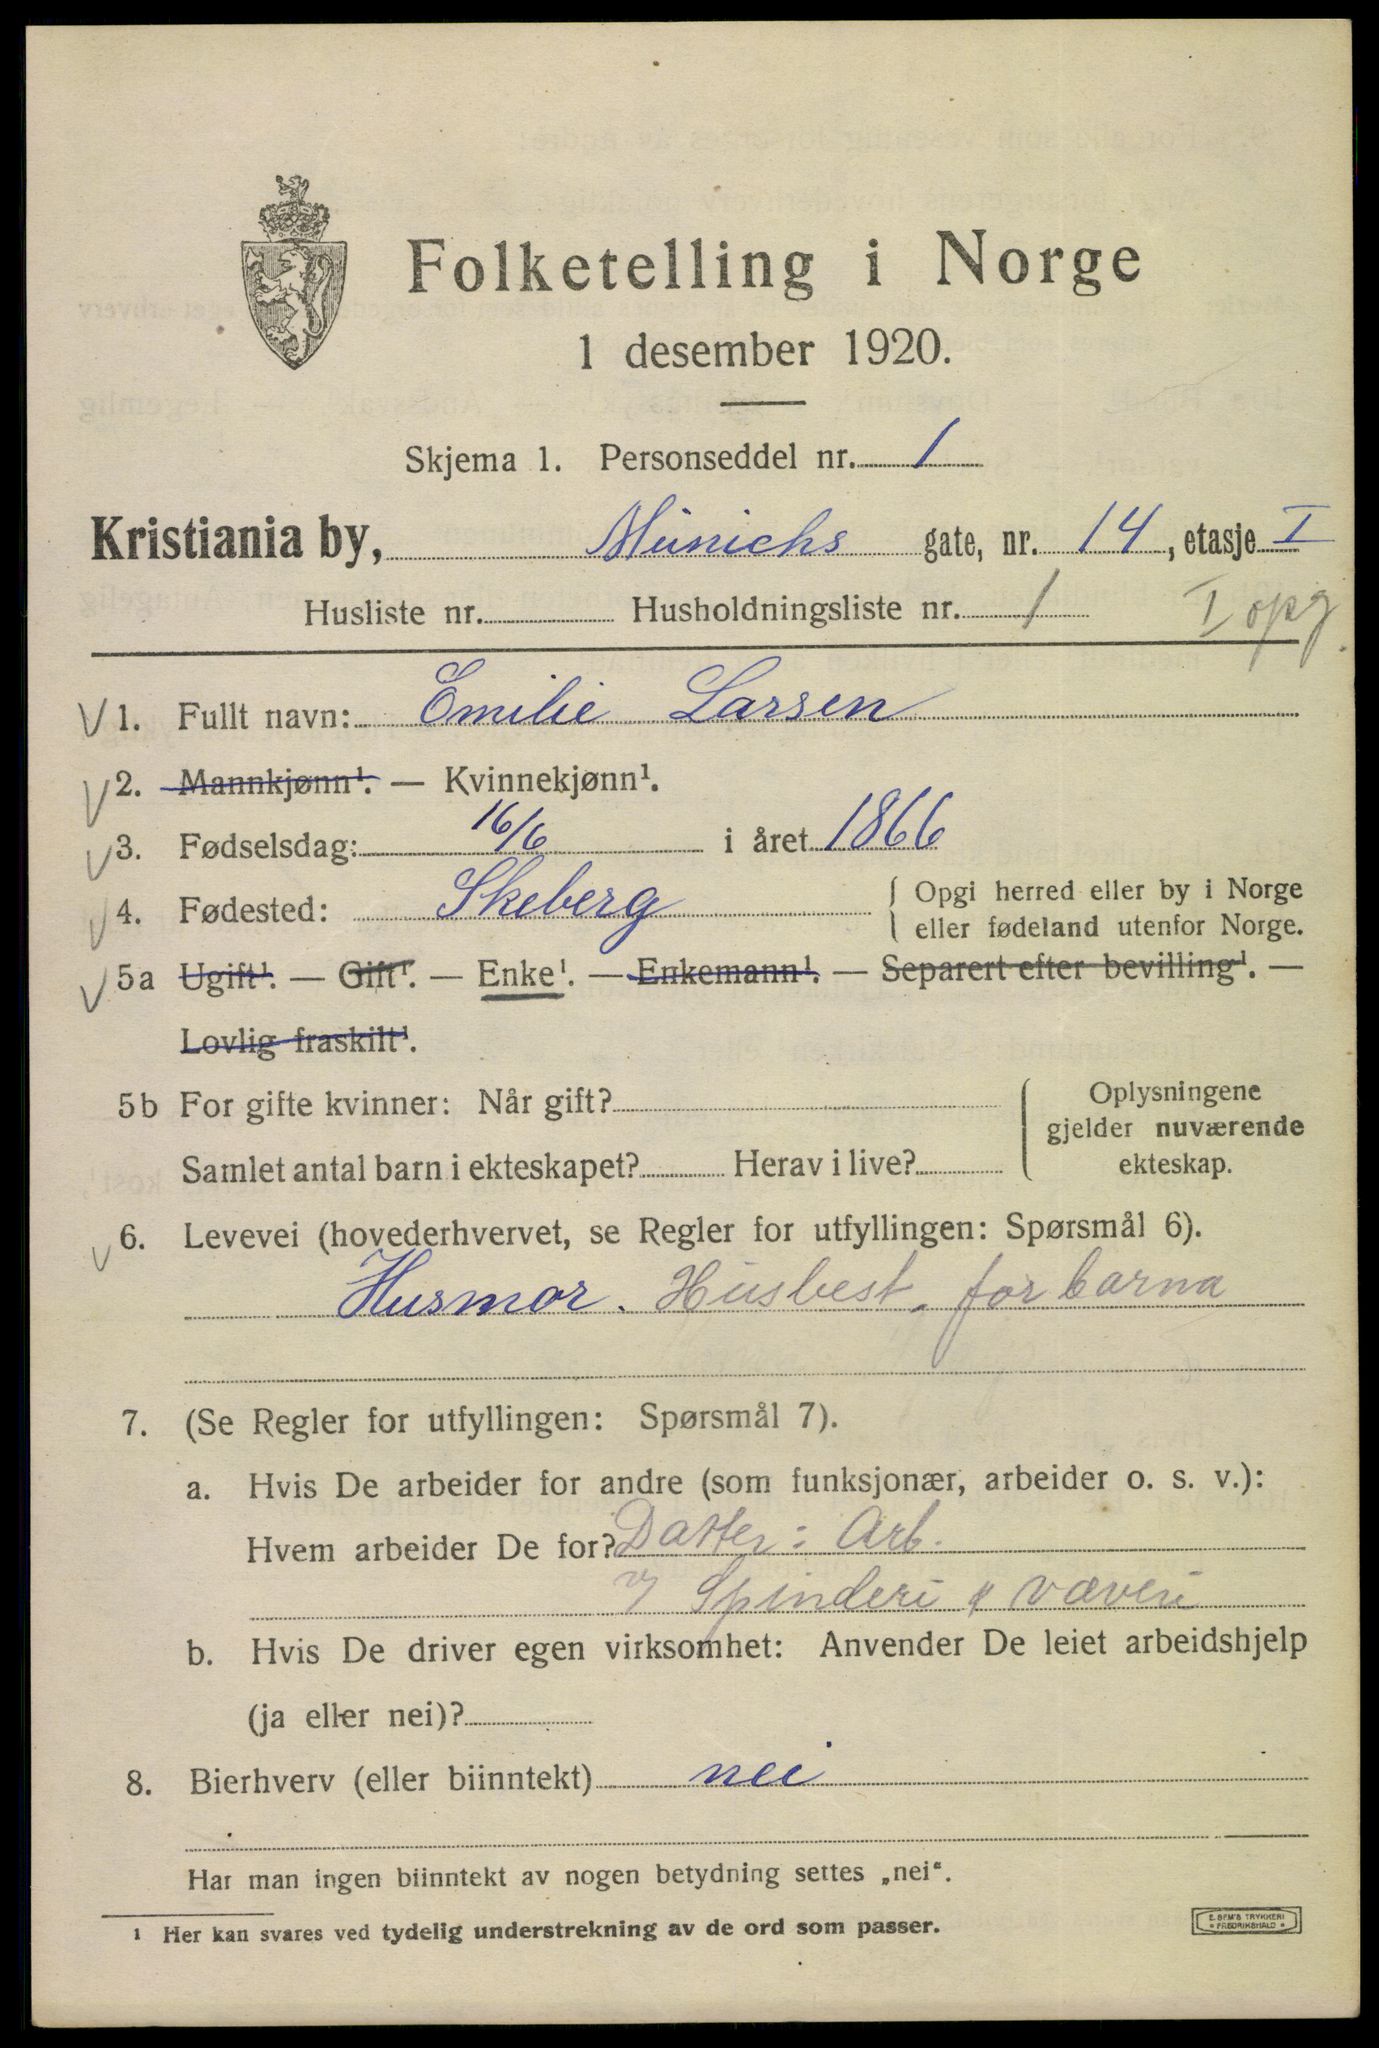 Folketelling i Norge
1 desember 1920.
Skjema 1. Personseddel nr. 1
Kristiania by, Münichs gate, nr. 14, etasje I
Husliste nr. Husholdningsliste nr. 1 I opg.
1. Fullt navn: Emilie Larsen
2. Mannkjønn¹. — Kvinnekjønn¹.
3. Fødselsdag: 16/6 i året 1866
4. Fødested: Skeberg { Opgi herred eller by i Norge
eller fødeland utenfor Norge.
5a Ugift¹. — Gift¹. — Enke¹. — Enkemann¹. — Separert efter bevilling¹. —
Lovlig fraskilt¹.
5b For gifte kvinner: Når gift?
Samlet antal barn i ekteskapet? Herav i live?
Oplysningene
gjelder nuværende
ekteskap.
6. Levevei (hovederhvervet, se Regler for utfyllingen: Spørsmål 6).
Husmor. Husbest. for barna
7. (Se Regler for utfyllingen: Spørsmål 7).
a. Hvis De arbeider for andre (som funksjonær, arbeider o. s. v.):
Hvem arbeider De for? Datter: Arb.
v/ Spinderi & væveri
b. Hvis De driver egen virksomhet: Anvender De leiet arbeidshjelp
(ja eller nei)?
8. Bierhverv (eller biinntekt) nei
Har man ingen biinntekt av nogen betydning settes „nei“.
¹ Her kan svares ved tydelig understrekning av de ord som passer.
E. SEM'S TRYKKERI
* FREDRIKSHALD *